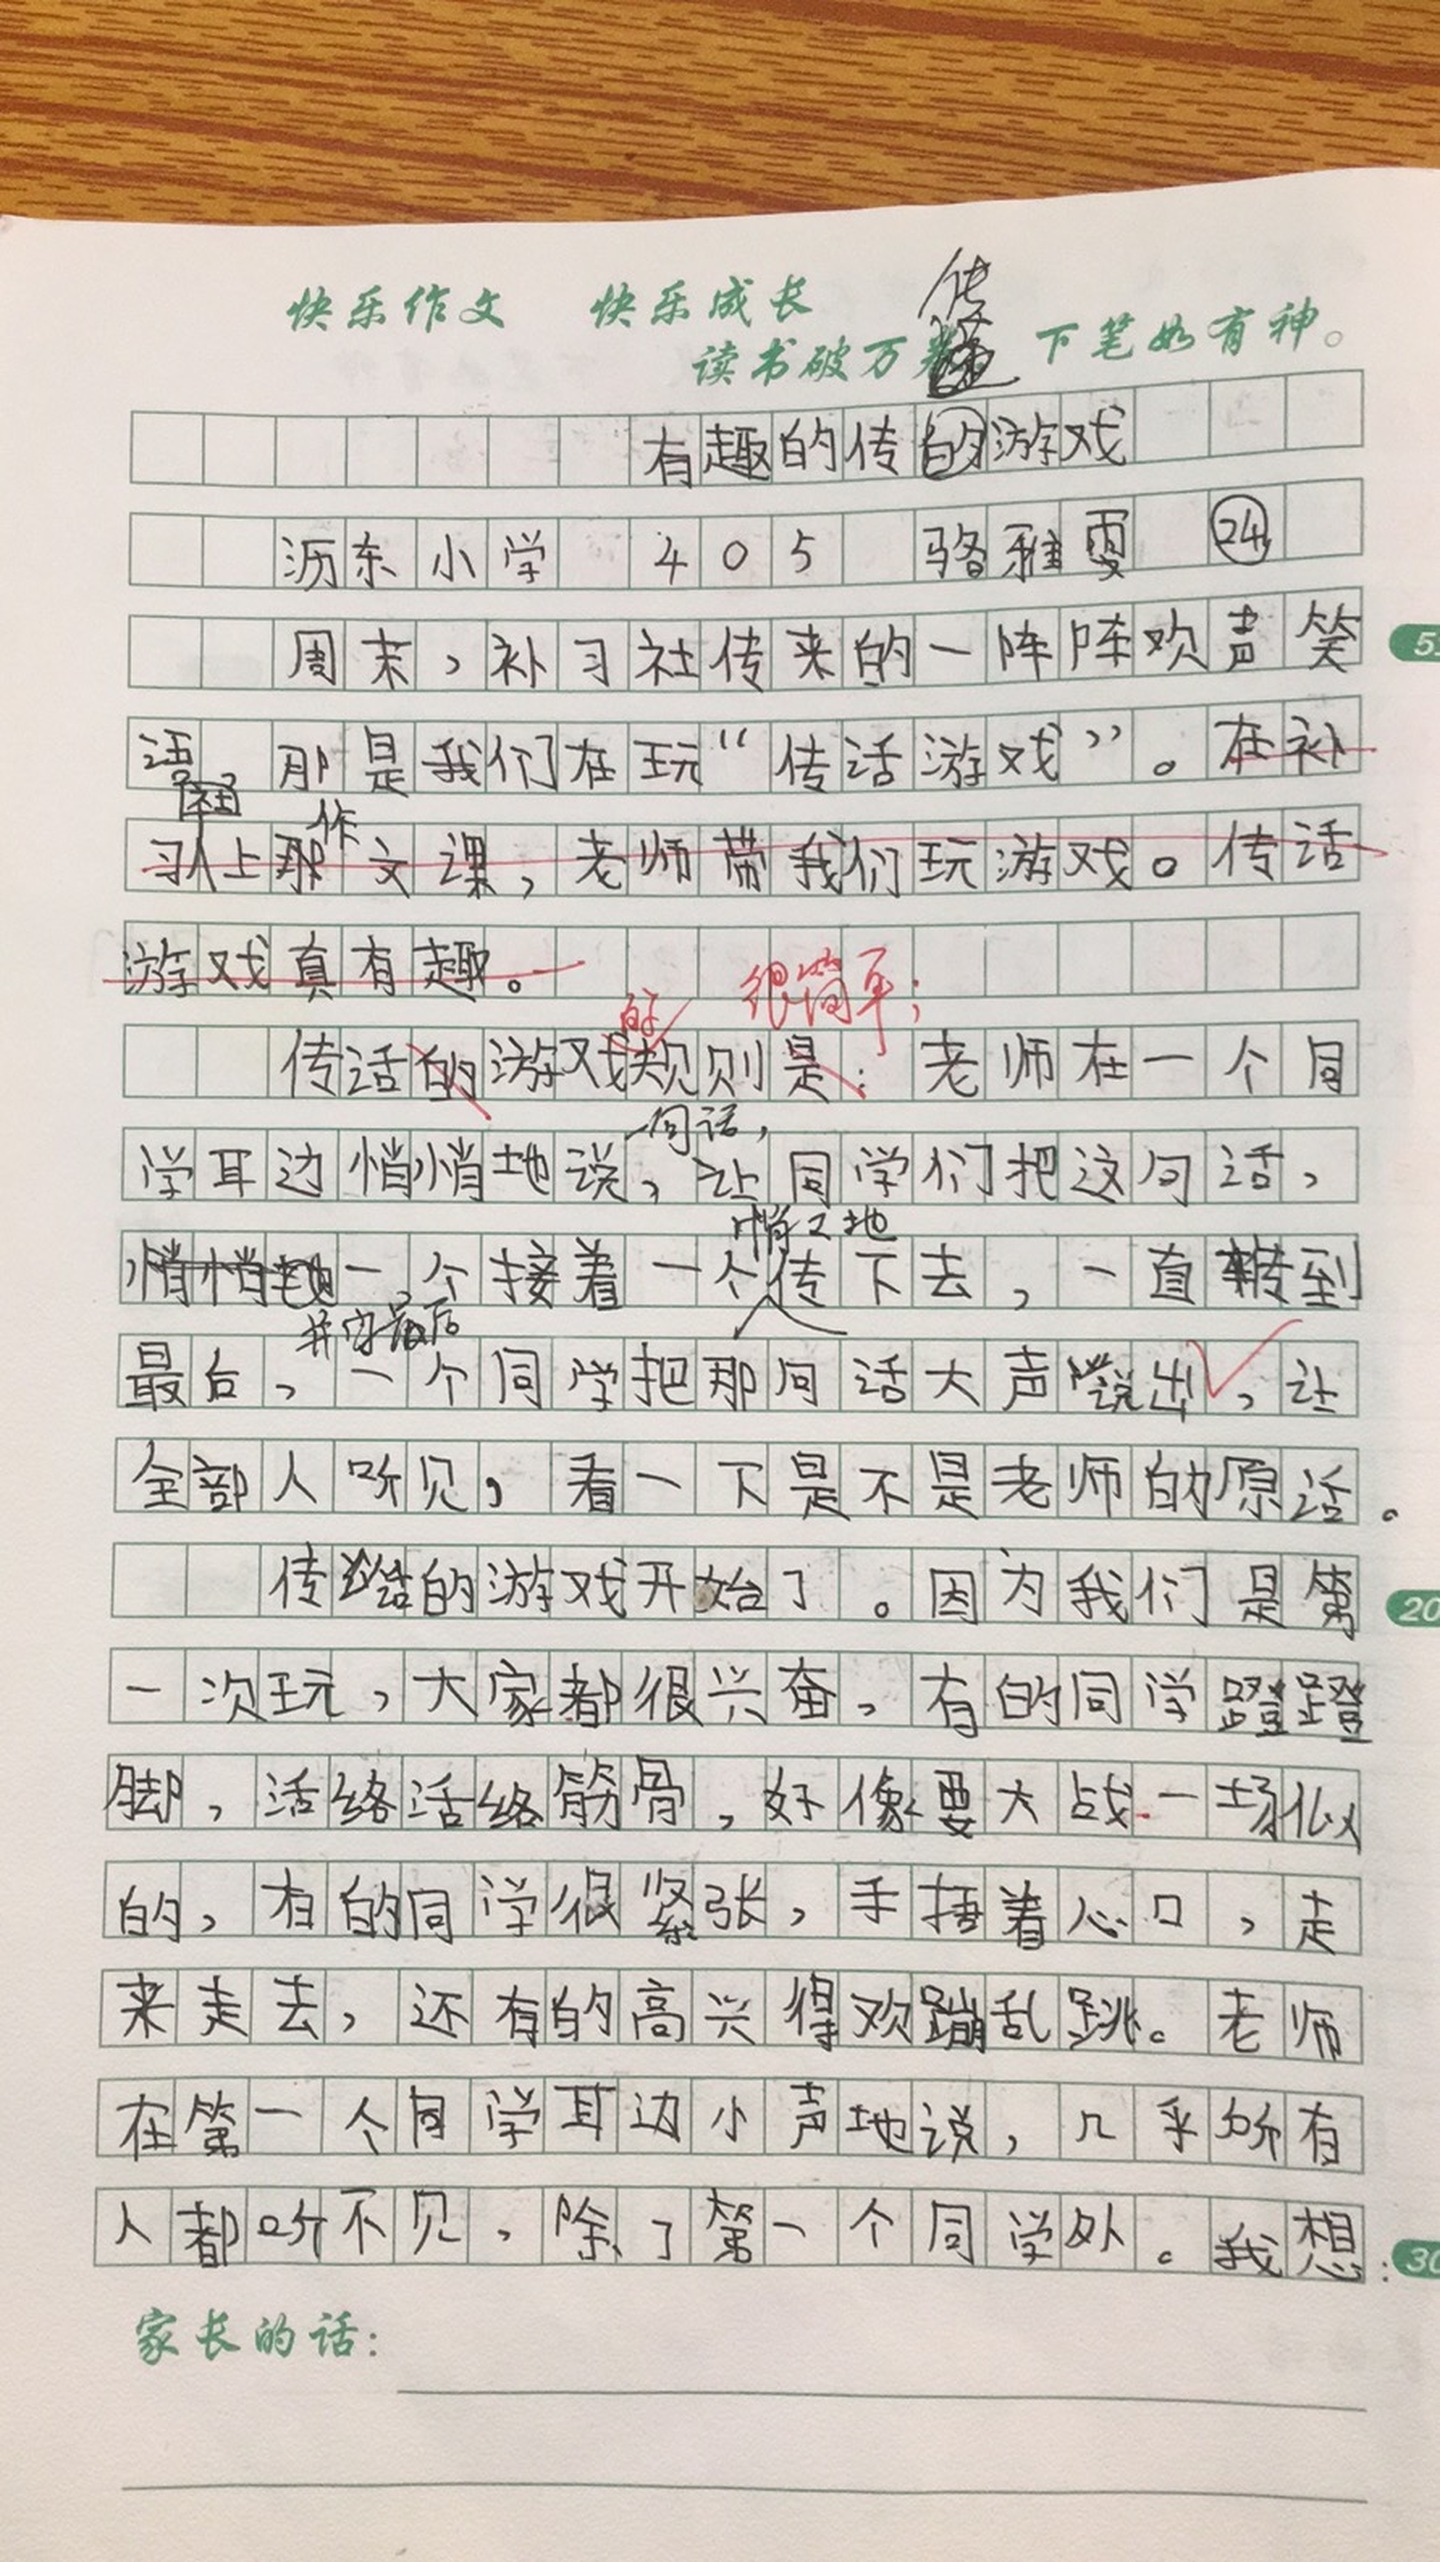 快乐作文 快乐成长
传
读书破万卷 下笔如有神。
有趣的传的游戏
沥东小学 405 骆雅雯 24
周末，补习社传来的一阵阵欢声笑 5
语 那是我们在玩“传话游戏”。在补
作
习社上那文课，老师带我们玩游戏。传话
游戏真有趣。
的 很简单；
传话的游戏规则是：老师在一个同
一句话，
学耳边悄悄地说，让同学们把这句话，
悄悄地
悄悄地一个接着一个传下去，一直转到
并由最后
最后，一个同学把那句话大声说出，让
全部人听见，看一下是不是老师的原话。
传话的游戏开始了。因为我们是第 20
一次玩，大家都很兴奋，有的同学蹬蹬
脚，活络活络筋骨，好像要大战一场似
的，有的同学很紧张，手捂着心口，走
来走去，还有的高兴得欢蹦乱跳。老师
在第一个同学耳边小声地说，几乎所有
人都听不见，除了第一个同学外。我想： 30
家长的话：